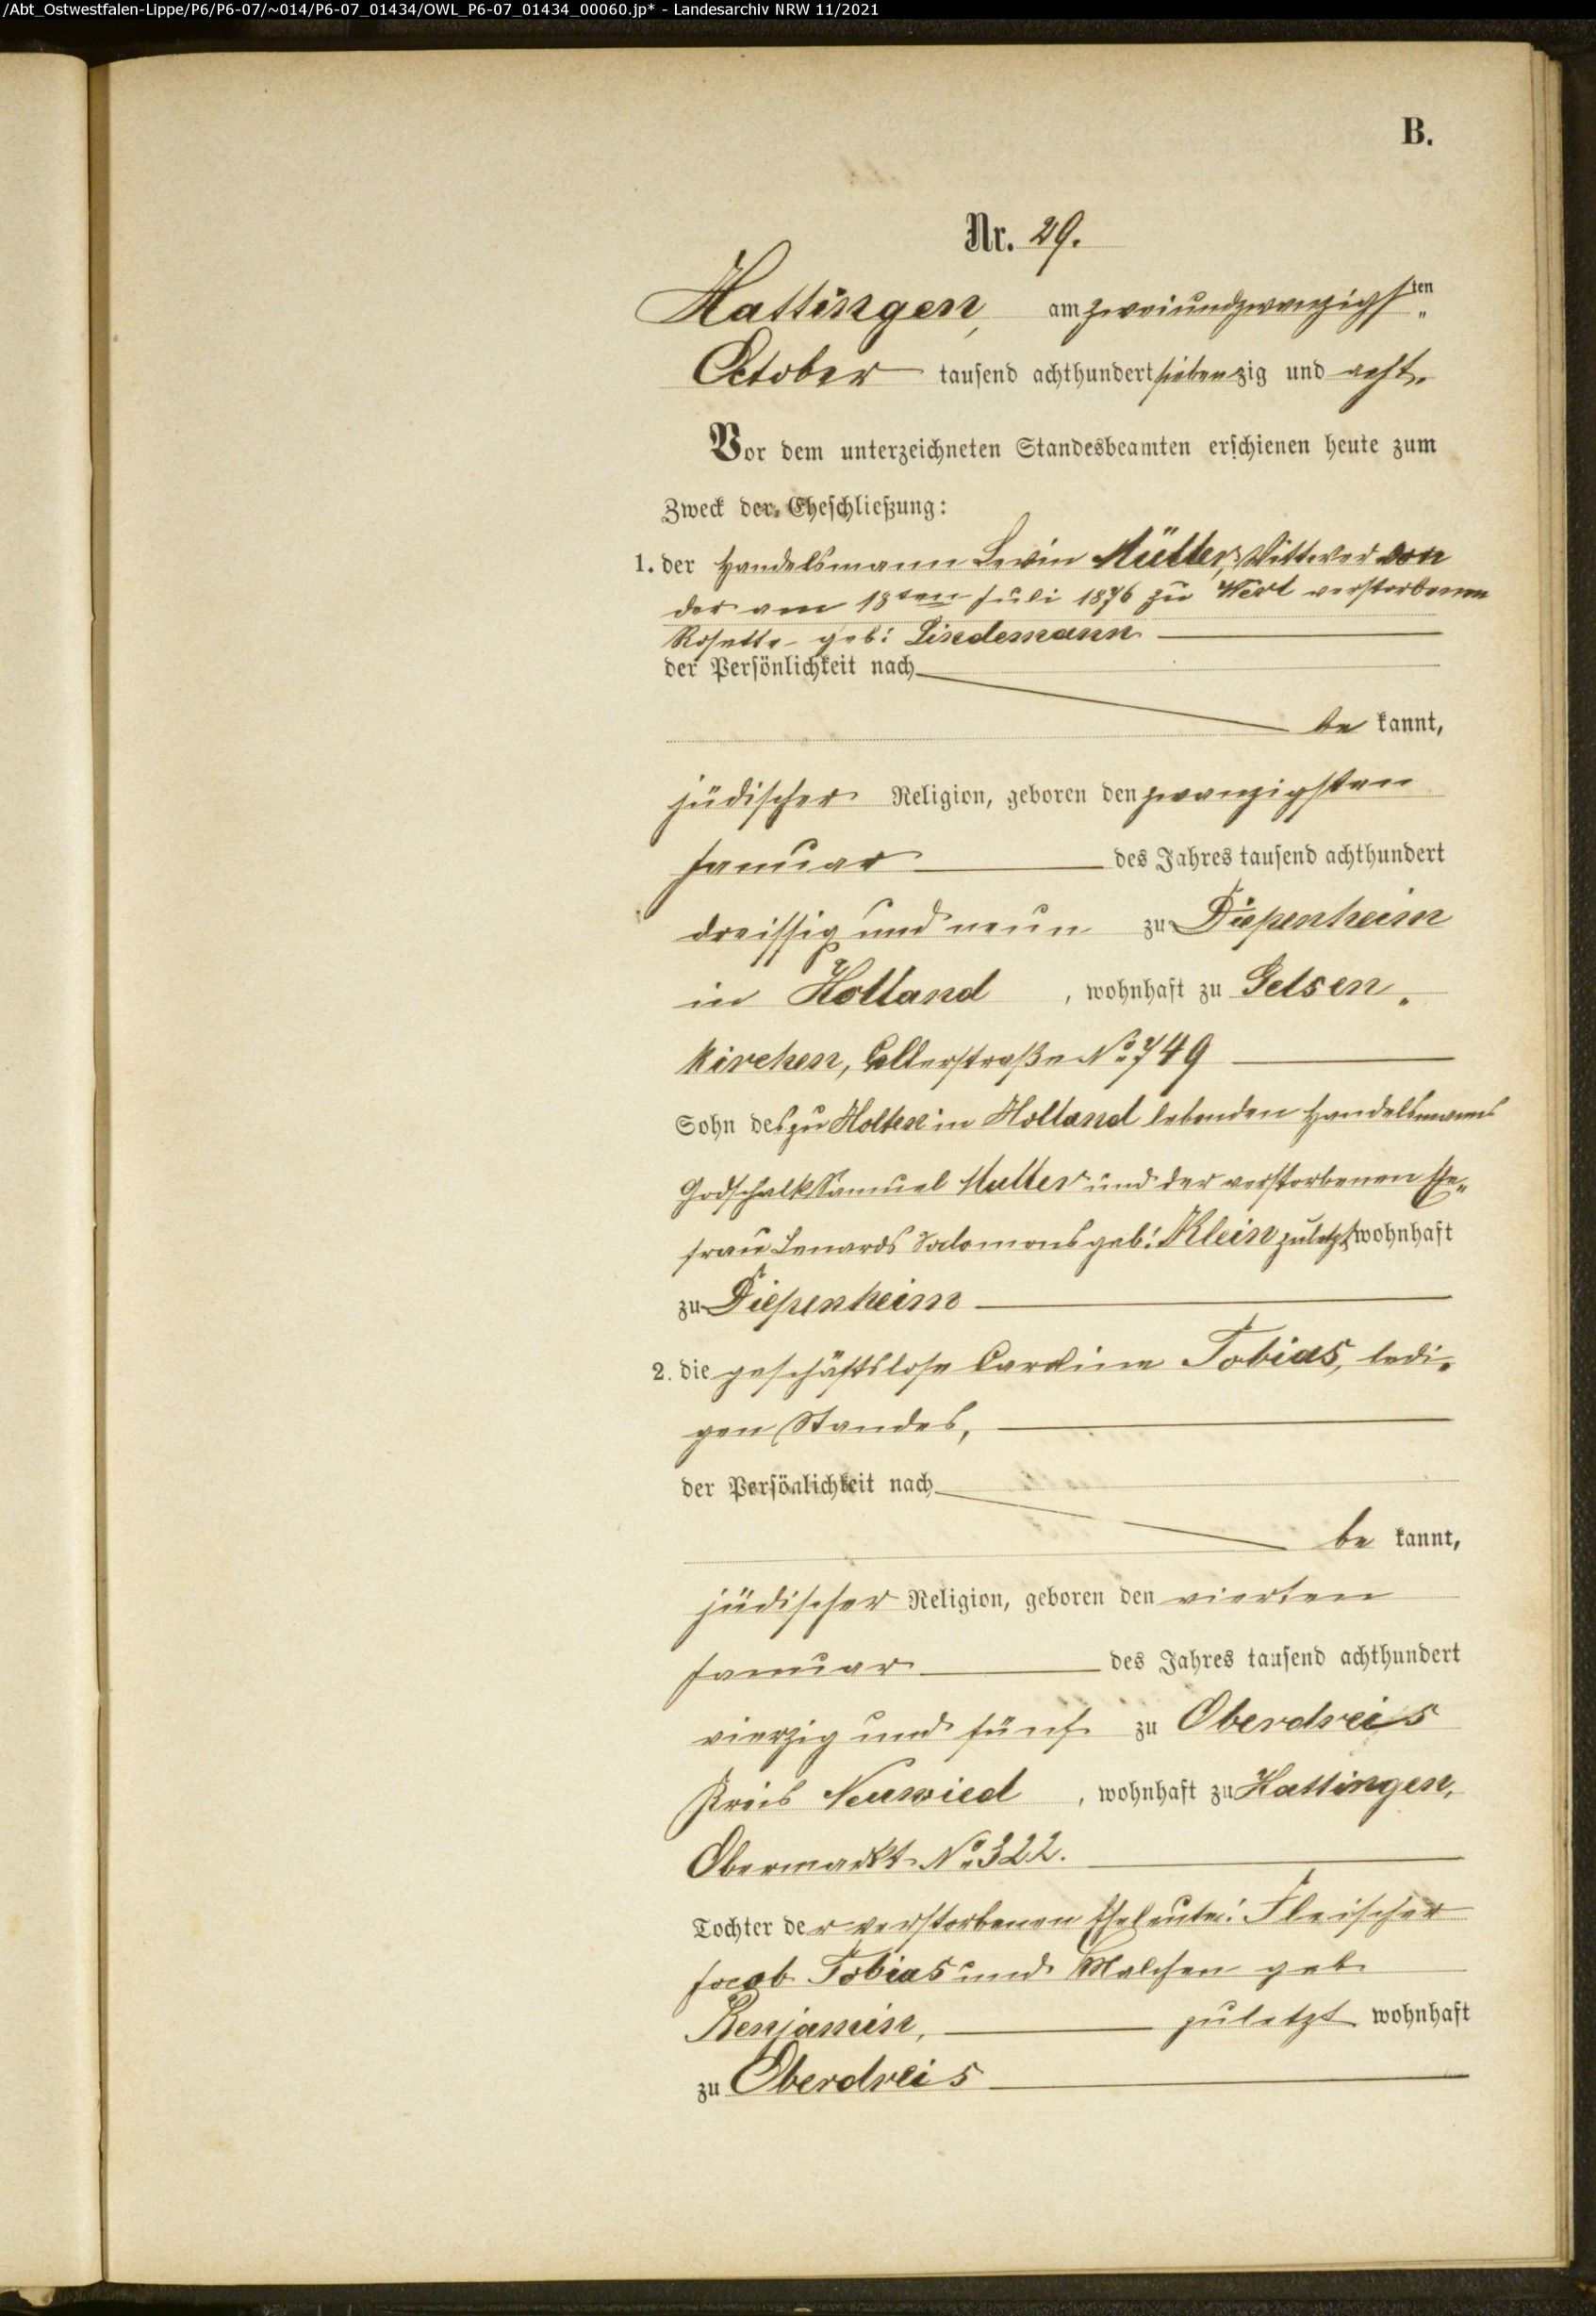 /Abt_Ostwestfalen-Lippe/P6/P6-07/~014/P6-07_01434/OWL_P6-07_01434_00060.jp* - Landesarchiv NRW 11/2021
B.
Nr. 29.
Hattingen, am zweiundzwanzigsten
October tausend achthundert siebenzig und acht.
Vor dem unterzeichneten Standesbeamten erschienen heute zum
Zweck der Eheschließung:
1. der Handelsmann Levin Müller, Wittwer von
der am 18ten Juli 1876 zu Werl verstorbenen
Rosette geb: Lindemann
der Persönlichkeit nach
be kannt,
jüdischer Religion, geboren den zwanzigsten
Januar des Jahres tausend achthundert
dreissig und neun zu Diepenheim
in Holland, wohnhaft zu Gelsen-
kirchen, No 749
Sohn des zu Holten in Holland lebenden Handelsmanns
Godschalk Samuel Muller und der verstorbenen Ehe-
frau Lenards Salomons geb: Klein zuletzt wohnhaft
zu Diepenheim
2. die geschäftslose Caroline Tobias, ledi-
gen Standes,
der Persönlichkeit nach
be kannt,
jüdischer Religion, geboren den vierten
Januar des Jahres tausend achthundert
vierzig und fünf zu Oberdreis
Kreis Neuwied, wohnhaft zu Hattingen,
Obermarkt No 322.
Tochter der verstorbenen Eheleute: Fleischer
Jacob Tobias und Malchen geb.
Benjamin, zuletzt wohnhaft
zu Oberdreis